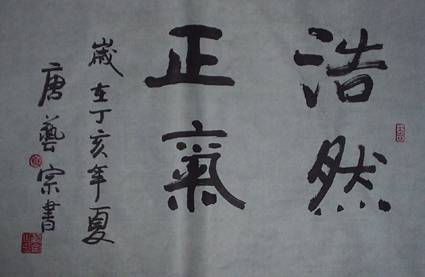 浩然
正氣
歲在丁亥年夏
唐藝宗書